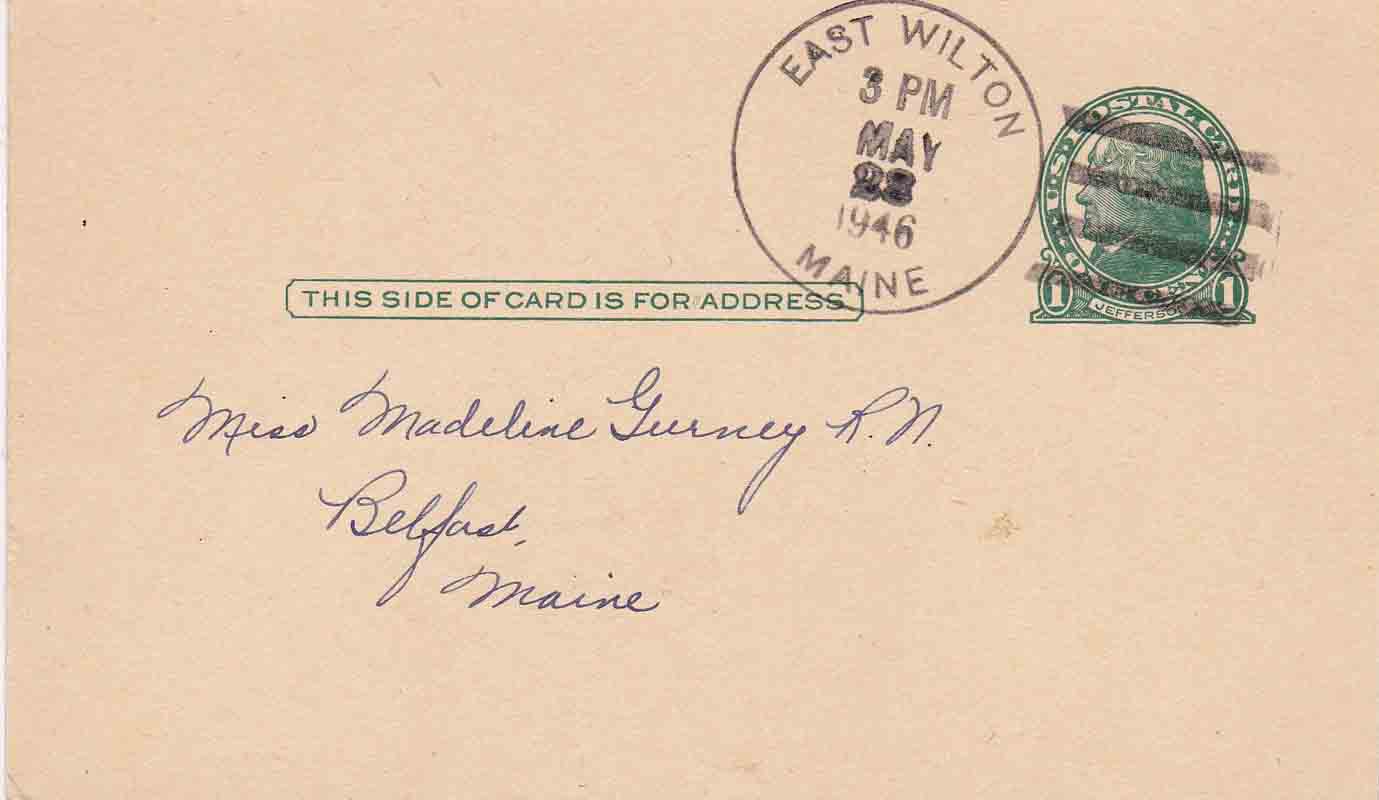 EAST WILTON
3 PM
MAY
1946
MAINE
U.S. POSTAL CARD
ONE CENT
1 1
JEFFERSON
THIS SIDE OF CARD IS FOR ADDRESS
Miss Madeline Gurney R.N.
Belfast,
Maine